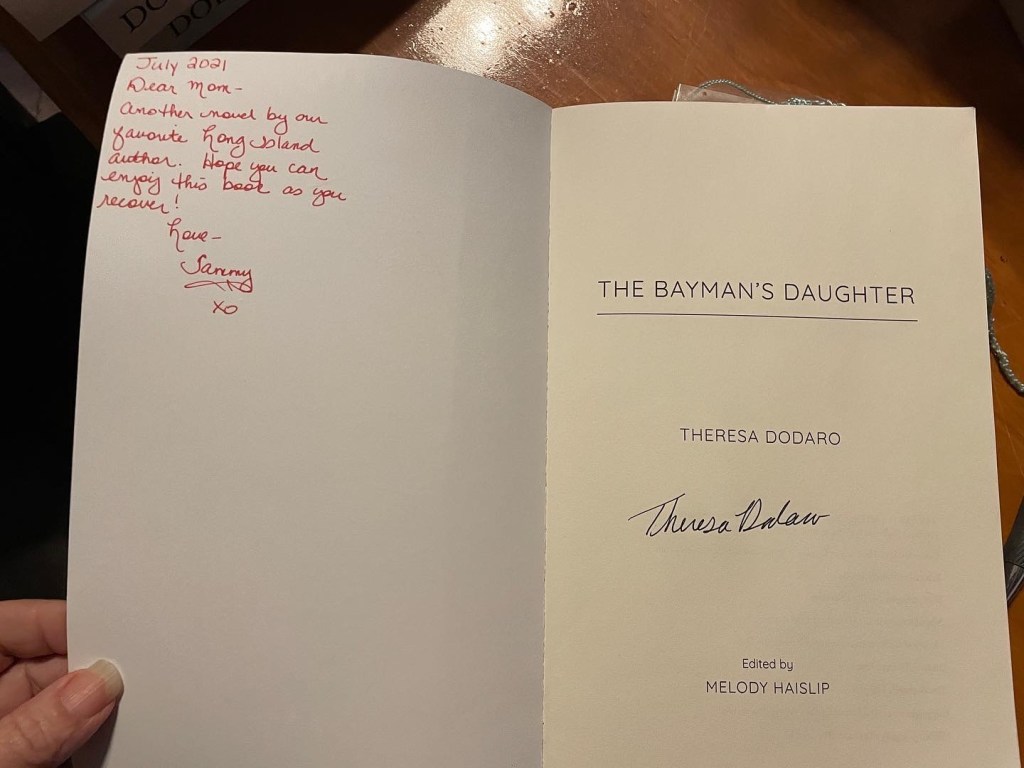 DO
DO
July 2021
Dear Mom-
Another novel by our
favorite Long Island
author. Hope you can
enjoy this book as you
recover!
Love-
Sammy
xo
THE BAYMAN'S DAUGHTER
THERESA DODARO
Theresa Dodaro
Edited by
MELODY HAISLIP